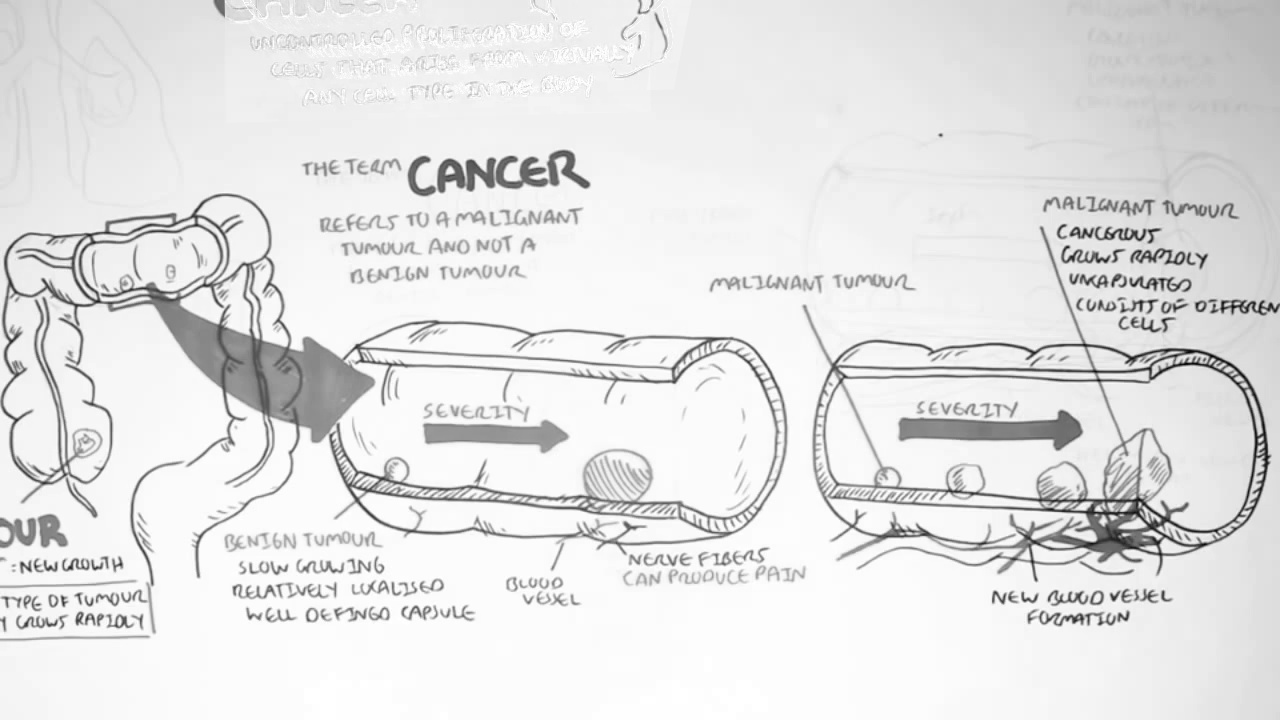 CANCER
UNCONTROLLED PROLIFERATION OF
CELLS THAT ARISE FROM
ANY CELL TYPE IN THE BODY
THE TERM CANCER
REFERS TO A MALIGNANT
TUMOUR AND NOT A
BENIGN TUMOUR
OUR
: NEW GROWTH
TYPE OF TUMOUR
Y GROWS RAPIDLY
SEVERITY
BENIGN TUMOUR
SLOW GROWING
RELATIVELY LOCALISED
WELL DEFINGO CAPSULE
BLOOD
VESSEL
NERVE FIBERS
CAN PRODUCE PAIN
MALIGNANT TUMOUR
SEVERITY
MALIGNANT TUMOUR
CANCEROUS
GROWS RAPIDLY
UNCAPSULATED
CONSISTS OF DIFFEREN
CELLS
NEW BLOOD VESSEL
FORMATION